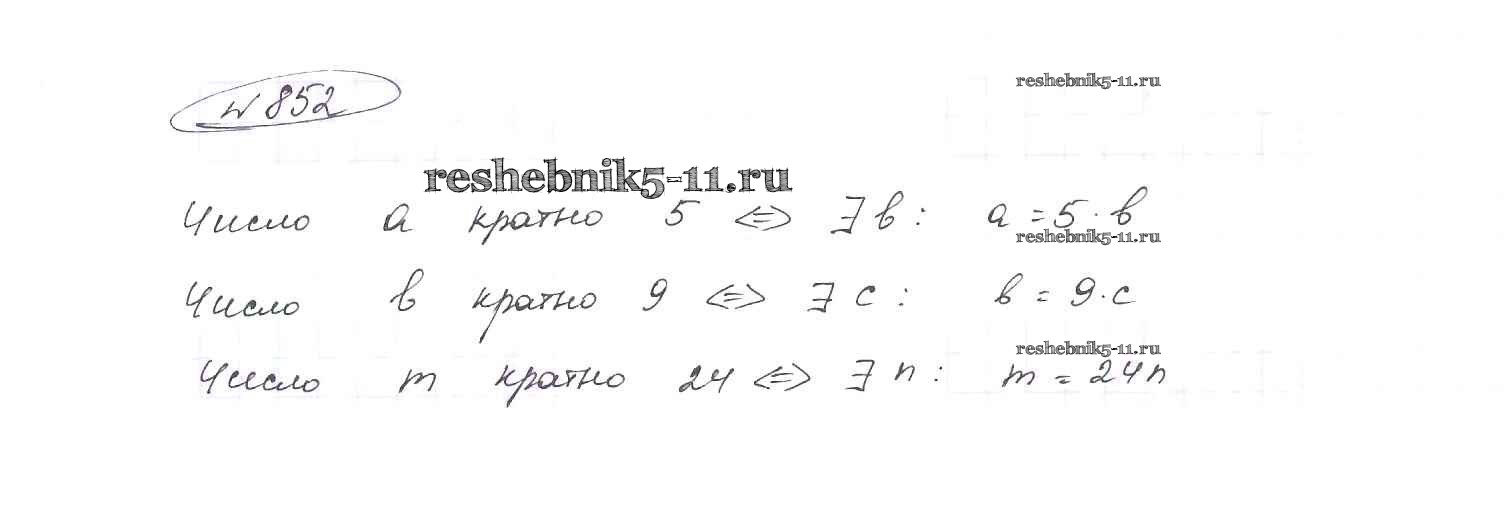 № 852
reshebnik5-11.ru
reshebnik5-11.ru
Число а кратно 5 <=> ∃ в : а = 5 · в
reshebnik5-11.ru
Число в кратно 9 <=> ∃ с : в = 9 · с
reshebnik5-11.ru
Число m кратно 24 <=> ∃ n : m = 24n